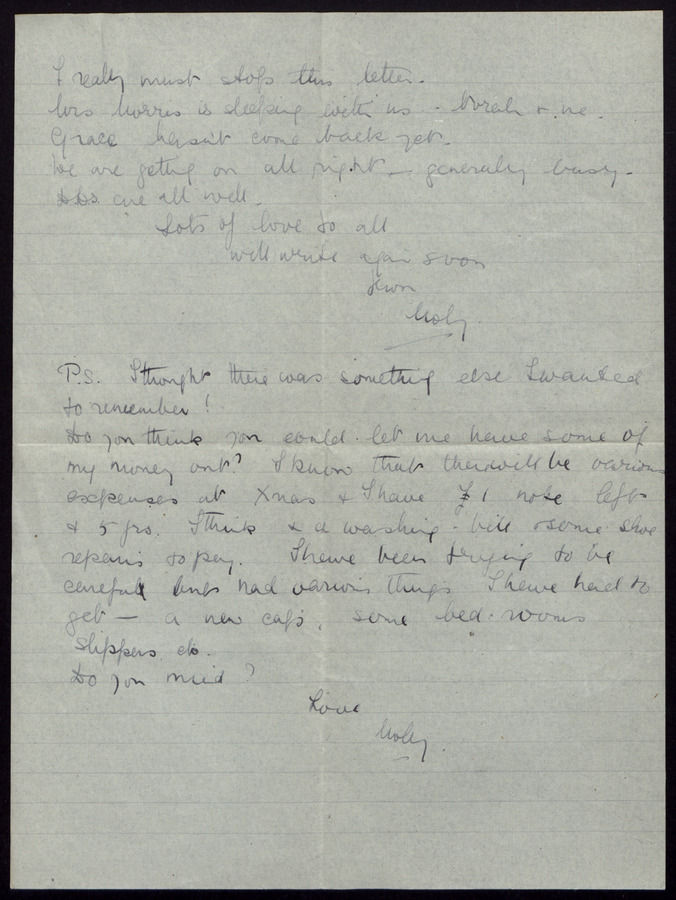 I really must stop this letter.
Morris is sleeping with us - & me.
Grace hasn't come back yet.
We are getting on all right — generally busy.
are all well.
Lots of love to all
will write again soon
Your
Moly.
P.S. I thought there was something else I wanted
to remember!
Do you think you could let me have some of
my money out? I know that there will be various
expenses at Xmas & I have £1 note left
& 5 frs. I think & a washing-bill & some shoe
repairs to pay. I have been trying to be
careful but had various things I have had to
get — a new cap, some bed-room
slippers etc.
Do you mind?
Love
Moly.